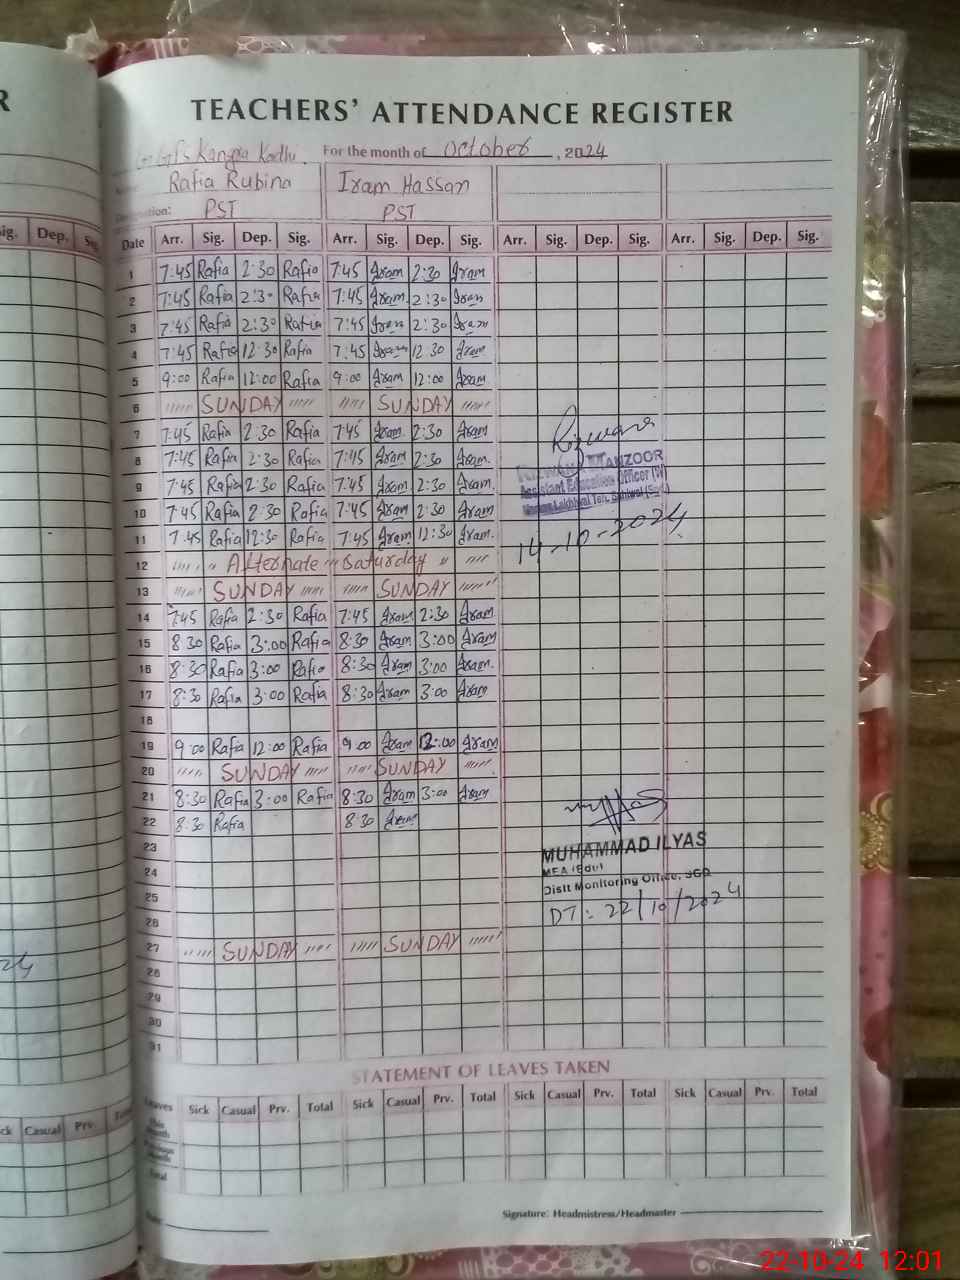 R
TEACHERS' ATTENDANCE REGISTER
GGPS Kangra Kadhi. For the month of October, 2024
Rafia Rubina Iram Hassan
Designation: PST PST
Sig. Dep. Sig. Date Arr. Sig. Dep. Sig. Arr. Sig. Dep. Sig. Arr. Sig. Dep. Sig. Arr. Sig. Dep. Sig.
1 7:45 Rafia 2:30 Rafia 7:45 Iram 2:30 Iram
2 7:45 Rafia 2:30 Rafia 7:45 Iram 2:30 Iram
3 7:45 Rafia 2:30 Rafia 7:45 Iram 2:30 Iram
4 7:45 Rafia 12:30 Rafia 7:45 Iram 12 30 Iram
5 9:00 Rafia 12:00 Rafia 9:00 Iram 12:00 Iram
6 SUNDAY SUNDAY
7 7:45 Rafia 2:30 Rafia 7:45 Iram 2:30 Iram
8 7:45 Rafia 2:30 Rafia 7:45 Iram 2:30 Iram
9 7:45 Rafia 2:30 Rafia 7:45 Iram 2:30 Iram
10 7:45 Rafia 2:30 Rafia 7:45 Iram 2:30 Iram
11 7:45 Rafia 12:30 Rafia 7:45 Iram 12:30 Iram
12 Alternate Saturday
13 SUNDAY SUNDAY
14 7:45 Rafia 2:30 Rafia 7:45 Iram 2:30 Iram
15 8 30 Rafia 3:00 Rafia 8:30 Iram 3:00 Iram
16 8:30 Rafia 3:00 Rafia 8:30 Iram 3:00 Iram
17 8:30 Rafia 3:00 Rafia 8:30 Iram 3:00 Iram
18
19 9:00 Rafia 12:00 Rafia 9:00 Iram 12:00 Iram
20 SUNDAY SUNDAY
21 8:30 Rafia 3:00 Rafia 8:30 Iram 3:00 Iram
22 8:30 Rafia 8:30 Iram
23
24
25
26
27 SUNDAY SUNDAY
28
29
30
31
Rizwana
RIZWANA MANZOOR
Assistant Education Officer (W)
14-10-2024
MUHAMMAD ILYAS
MEA (Edu)
Distt Monitoring Office, SGD
DT: 22/10/2024
STATEMENT OF LEAVES TAKEN
Casual Prv. Total Leaves Sick Casual Prv. Total Sick Casual Prv. Total Sick Casual Prv. Total Sick Casual Prv. Total
This Month
Previous Month
Total
Signature: Headmistress/Headmaster
22-10-24 12:01